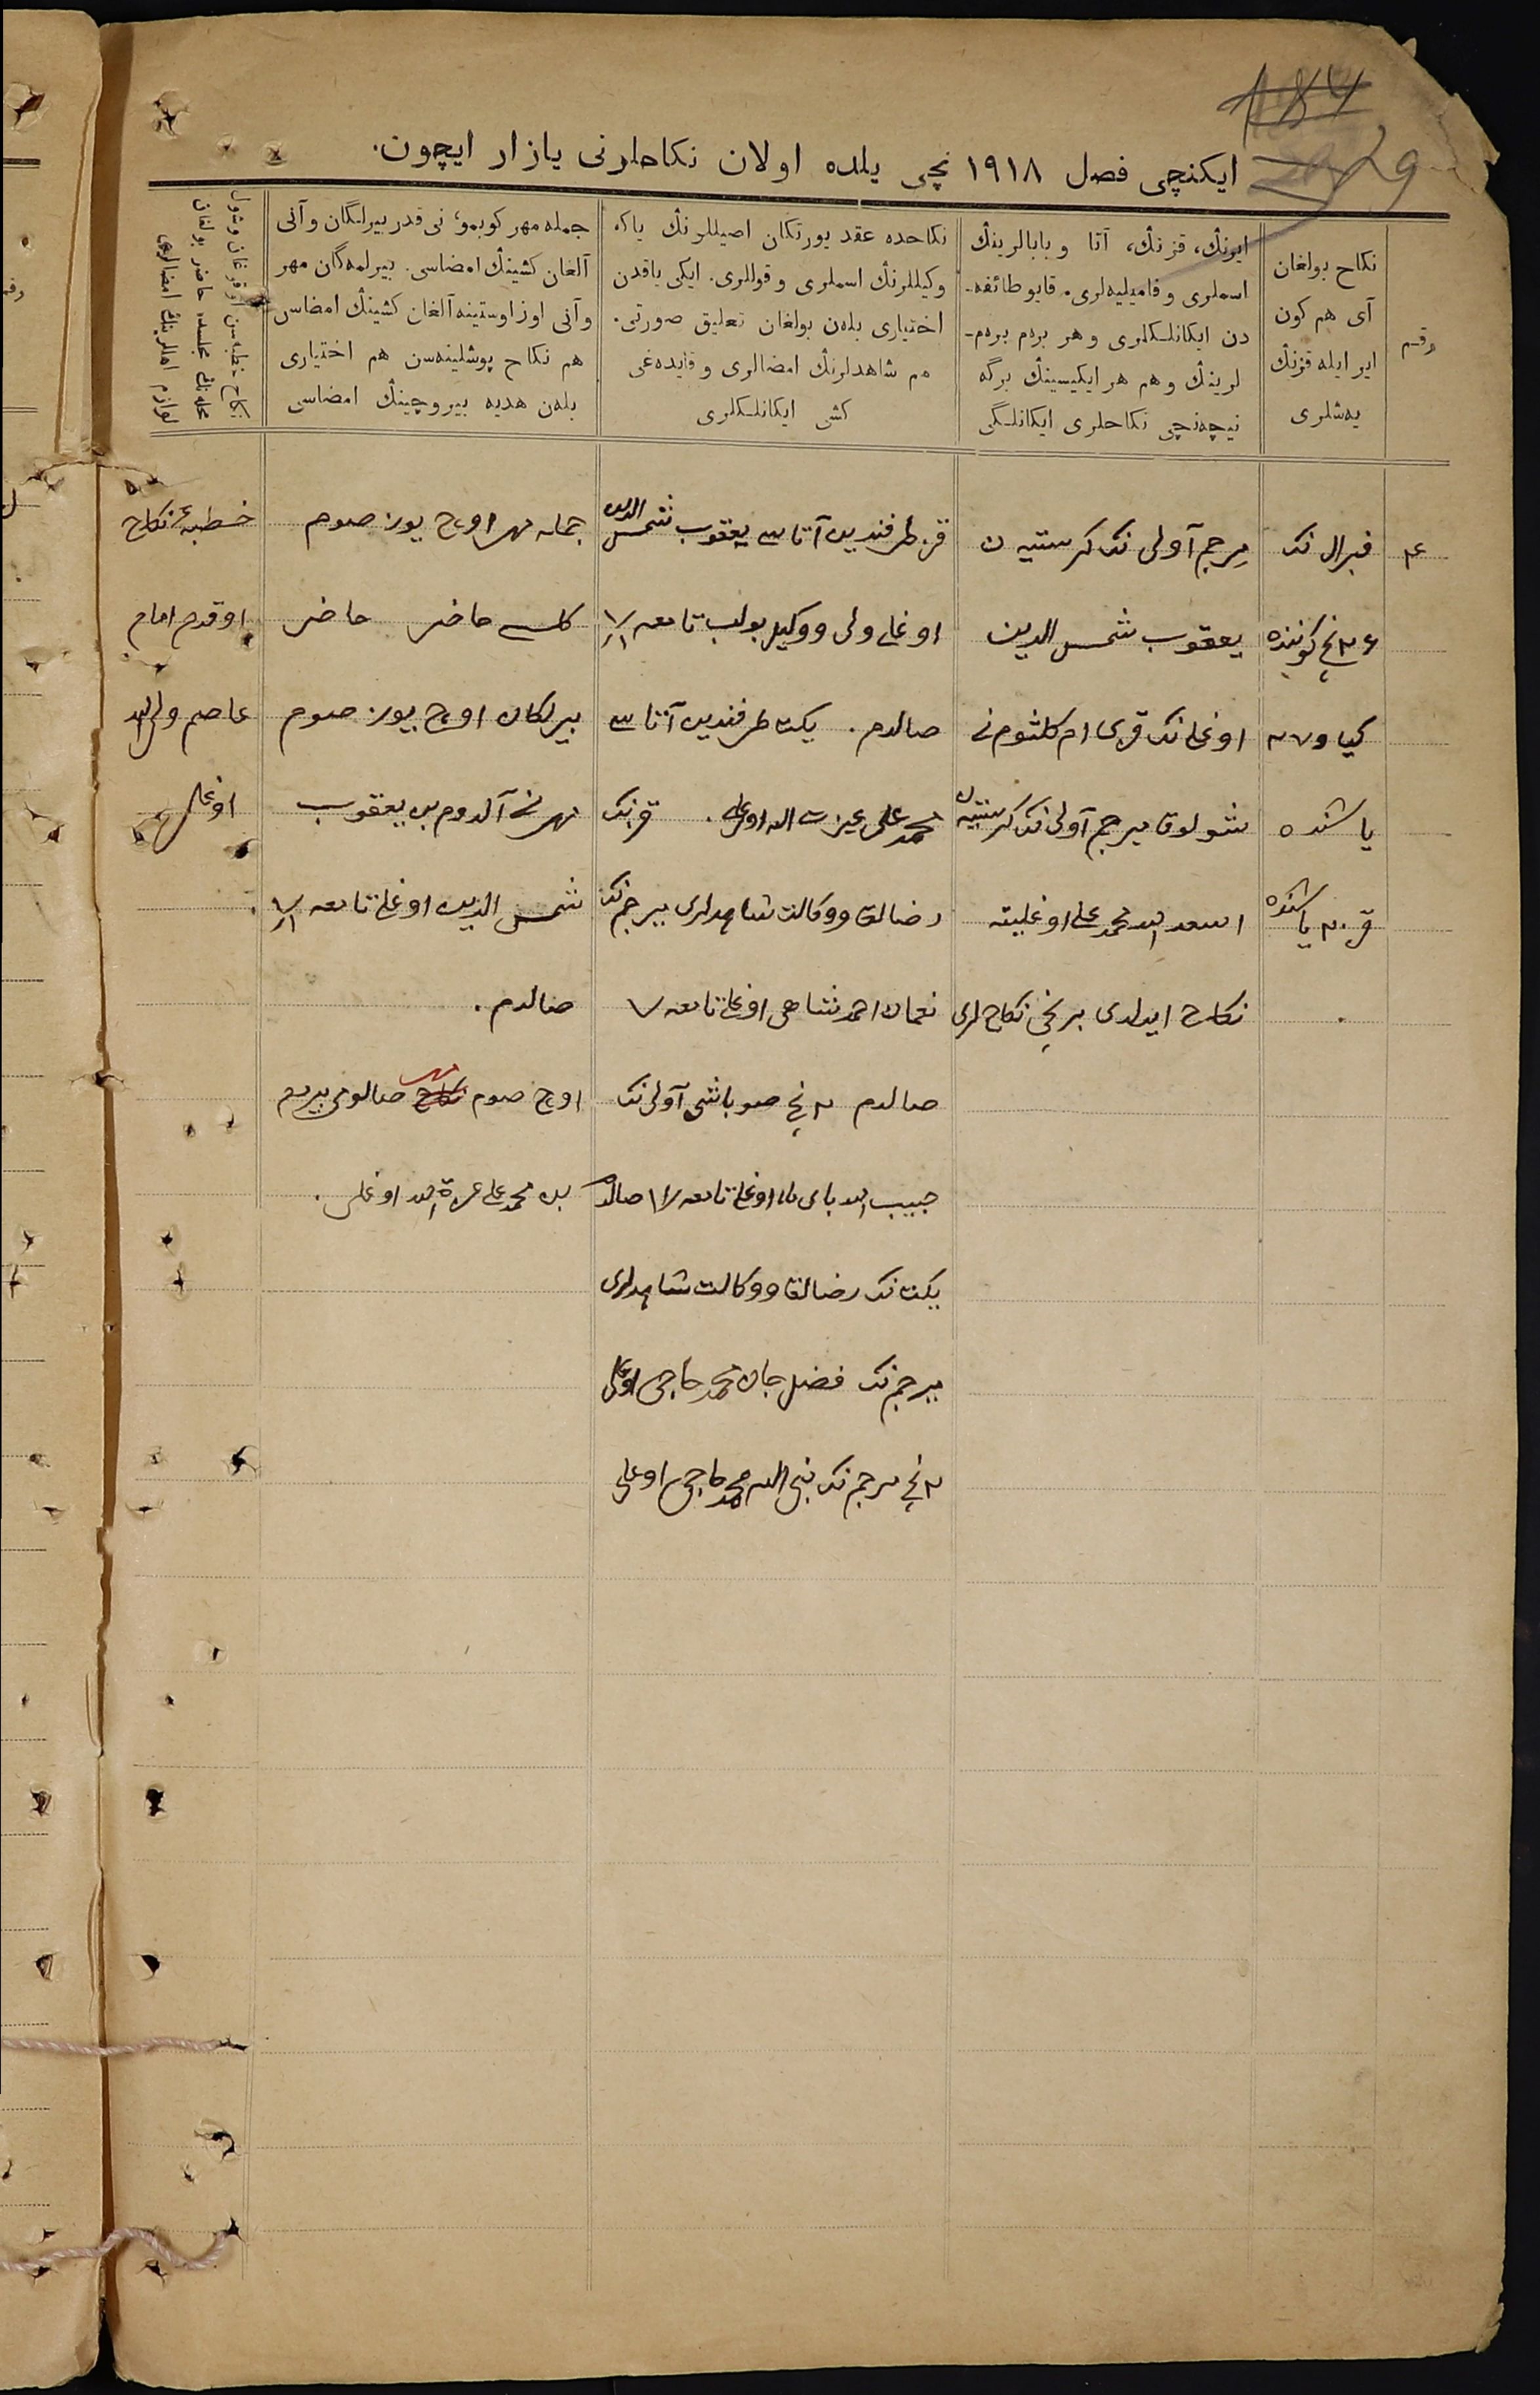 ایکنچی فصل ١٩١٨ نچی یلده اولان نکاحلرنی یازار ایچون.
29
رقم
نکاح بولغان
آی هم کون
ایر ایله قزنڭ
یەشلری
ایرنڭ، قزنڭ، آتا و بابالرینڭ
اسملری و فامیلیەلری. قایو طائفه-
دن ایکانلکلری و هر برەم برەم-
لرینڭ و هم هر ایکیسینڭ برگه
نیچەنچی نکاحلری ایکانلگی
نکاحده عقد یورتکان اصیللرنڭ یاکه
وکیللرنڭ اسملری و قوللری. ایکی یاقدن
اختیاری بلەن بولغان تعلیق صورتی.
هم شاهدلرنڭ امضالری و قایدەغی
کشی ایکانلکلری
جمله مهر کوبمو، نی قدر بیرلگان و آنی
آلغان کشینڭ امضاسی. بیرلمەگان مهر
و آنی اوز اوستینه آلغان کشینڭ امضاسی
هم نکاح پوشلینەسن هم اختیاری
بلەن هدیه بیروچینڭ امضاسی
نکاح خطبەسن اوقوغان و شول
مجلسده حاضر بولغان
لوازم اهللرینڭ امضالری
٤
فبرال نک
٢٦ نچی کوننده
کیاو ٢٧
یاشنده
قز ٢٠ یاشنده
میرجم آولی نک کرستیان
یعقوب شمس الدین
اوغلی نک قزی ام کلثوم نی
شولوق میرجم آولی نک کرستیان
اسعد الله محمد علی اوغلینه
نکاح ایدلدی برنچی نکاح لری
قز طرفندین آتاسی یعقوب شمس الدین
اوغلی ولی و وکیل بولب تامغه
صالدم. یکت طرفندین آتاسی
محمد علی عزت الله اوغلی. قزنک
رضالق و وکالت شاهدلری میرجم نک
نعمان احمدشاهی اوغلی تامغه
صالدم ٢ نچی صوباشی آولی نک
حبیب الله بای اوغلی تامغه صالدم
یکت نک رضالق و وکالت شاهدلری
میرجم نک فضل جان محمد حاجی اوغلی
٢ نچی میرجم نک نبی الله محمد حاجی اوغلی
جمله مهر اوچ یوز صوم
کلسی حاضر حاضر
بیرلکان اوچ یوز صوم
مهرنی آلدوم بن یعقوب
شمس الدین اوغلی تامغه
صالدم.
اوچ صوم نکاح مهر صالومی بیردم
بن محمد علی عزة الله اوغلی.
خطبهٔ نکاح
اوقدم امام
عاصم ولی الله
اوغلی